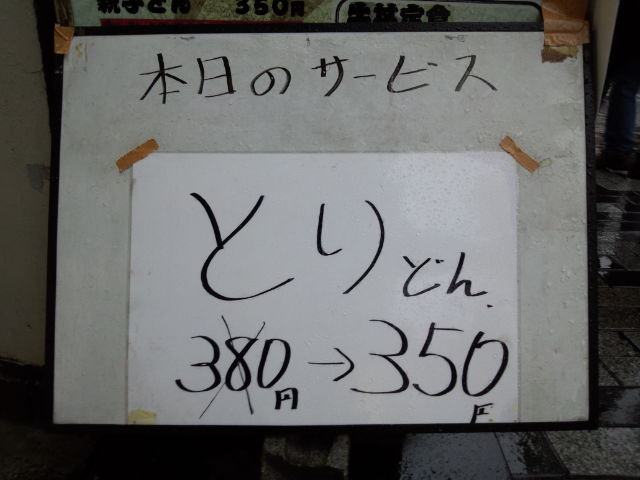 親子どん 350円
生姜定食
本日のサービス
とり どん
380円→350円